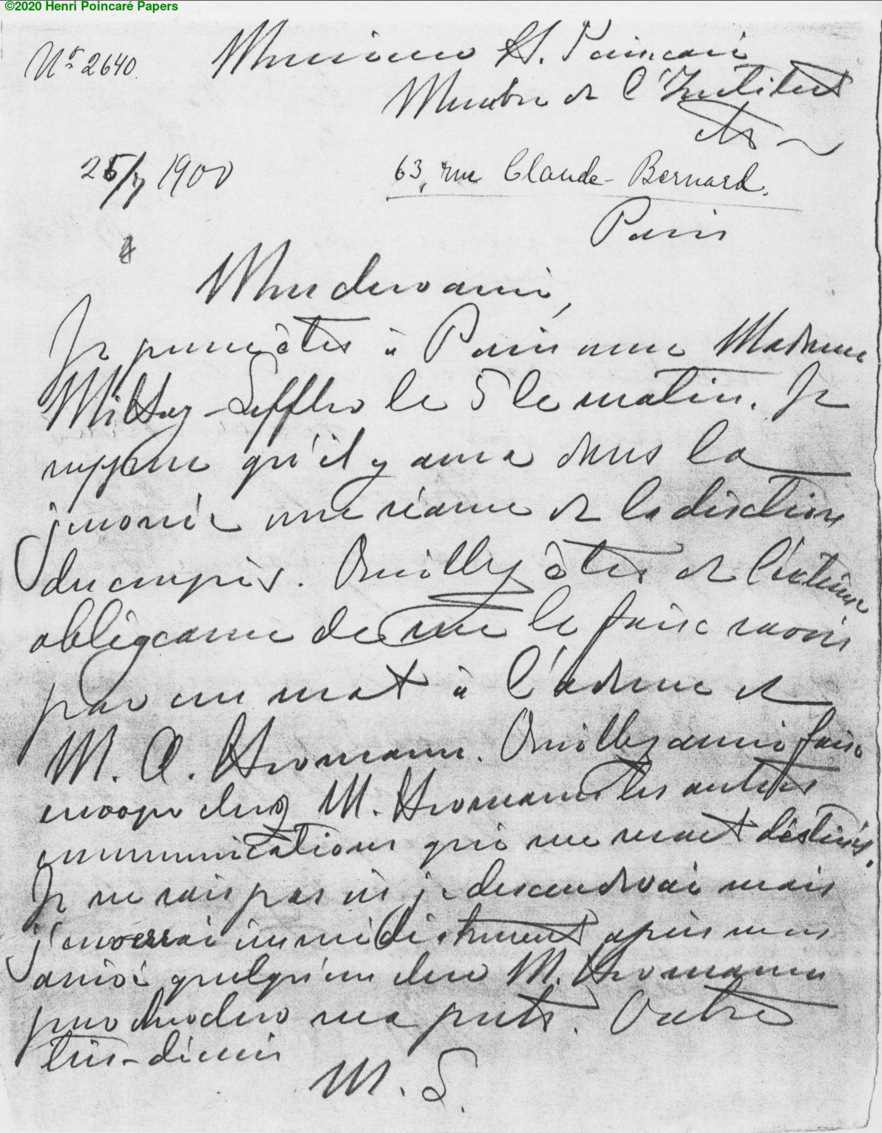 ©2020 Henri Poincaré Papers
Nº 2640.
Monsieur H. Poincaré
Membre de l'Institut
etc
25/7 1900
63, rue Claude-Bernard.
Paris
Mon cher ami,
Je pense être à Paris avec Madame
Mittag-Leffler le 5 le matin. Je
suppose qu'il y aura dans la
journée une séance de la direction
du congrès. Veuillez être de l'extrême
obligeance de me le faire savoir
par un mot à l'adresse de
M. A. Hermann. Veuillez aussi faire
envoyer chez M. Hermann les autres
communications qui me sont destinés.
Je ne sais pas où je descendrai mais
j'enverrai immédiatement après mon
arrivé quelqu'un chez M. Hermann
pour chercher ma poste. Votre
très-dévoué
M. L.